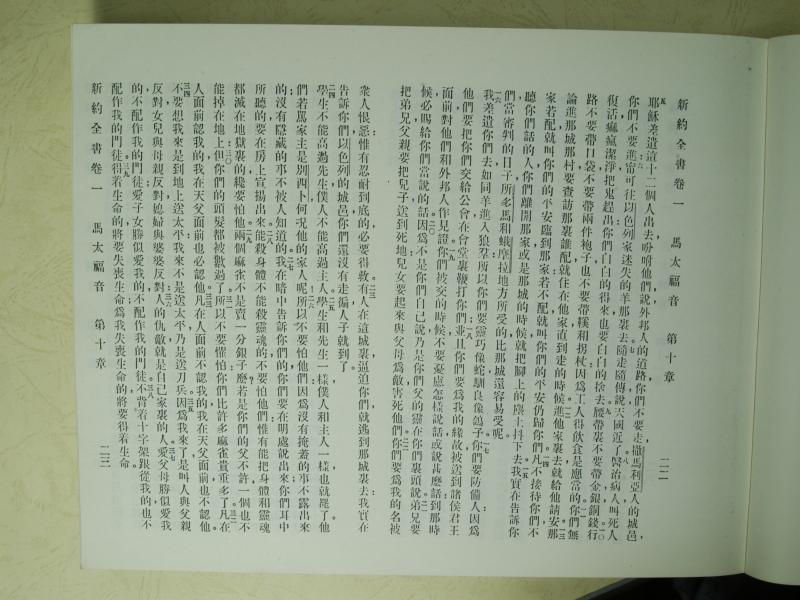 新約全書卷一　馬太福音　第十章　二二
耶穌差遣這十二個人出去吩咐他們說外邦人的道路你們不要走撒馬利亞人的城邑
你們不要進甯可往以色列家迷失的羊那裏去隨走隨傳說天國近了醫治病人叫死人
復活痲瘋潔淨把鬼趕出你們白白的得來也要白白的捨去腰帶裏不要帶金銀銅錢行
路不要帶口袋不要帶兩件褂子也不要帶鞋和拐杖因爲工人得飲食是應當的你們無
論進那城那村要查訪那裏誰配就住在他家直到走的時候進他家裏去就給他請安那
家若配就叫你們的平安臨到那家若不配就叫你們的平安仍歸你們凡不接待你們不
聽你們話的人你們離開那家或是那城的時候就把腳上的塵土抖下去我實在告訴你
們當審判的日子所多馬和蛾摩拉地方所受的比那城還容易受呢
我差遣你們去如同羊進入狼羣所以你們要靈巧像蛇馴良像鴿子你們要防備人因爲
他們要把你們交給公會在會堂裏鞭打你們並且你們要爲我的緣故被送到諸侯君王
面前對他們和外邦人作見證你們被交的時候不要憂慮怎樣說話或說甚麼話到那時
候必賜給你們當說的話因爲不是你們自己說乃是你們父的靈在你們裏頭說弟兄要
把弟兄父親要把兒子送到死地兒女要起來與父母爲敵害死他們你們要爲我的名被
衆人恨惡惟有忍耐到底的必要得救有人在這城裏逼迫你們就逃到那城裏去我實在
告訴你們以色列的城邑你們還沒有走徧人子就到了
學生不能高過先生僕人不能高過主人學生和先生一樣僕人和主人一樣也就罷了他
們若罵家主是別西卜何況他的家人呢所以不要怕他們因爲沒有掩蓋的事不露出來
的沒有隱藏的事不被人知道的我在暗中告訴你們的你們要在明處說出來你們耳中
所聽的要在房上宣揚出來能殺身體不能殺靈魂的不要怕他們惟有能把身體和靈魂
都滅在地獄裏的纔要怕他兩個麻雀不是賣一分銀子麼若是你們的父不許一個也不
能掉在地上但你們的頭髮都被數過了所以不要懼怕你們比許多麻雀貴重多了凡在
人面前認我的我在天父面前也必認他凡在人面前不認我的我在天父面前也不認他
不要想我來是到地上送太平我來不是送太平乃是送刀兵因爲我來了是叫人與父親
反對女兒與母親反對媳婦與婆婆反對人的仇敵就是自己家裏的人愛父母勝似愛我
的不配作我的門徒愛子女勝似愛我的不配作我的門徒不背着十字架跟從我的也不
配作我的門徒得着生命的將要失喪生命爲我失喪生命的將要得着生命
新約全書卷一　馬太福音　第十章　二三